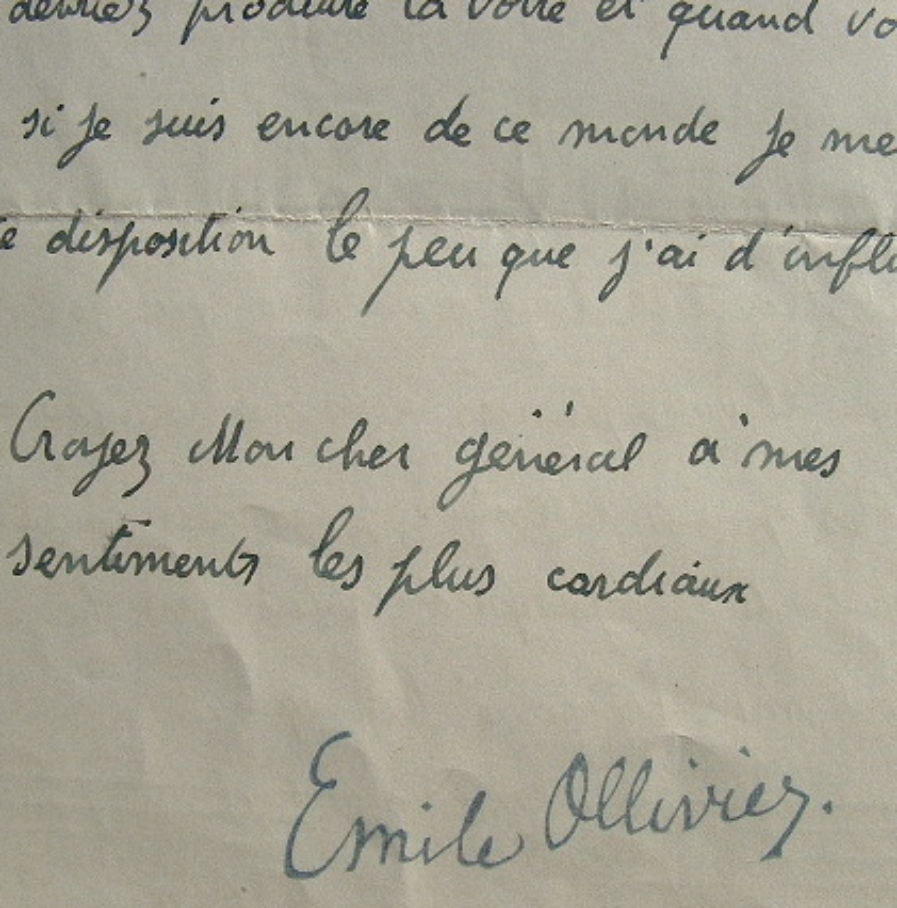 devriez produire la votre et quand vo
si je suis encore de ce monde je me
te disposition le peu que j'ai d'influ
Croyez Mon cher général à mes
sentiments les plus cordiaux
Emile Ollivier.